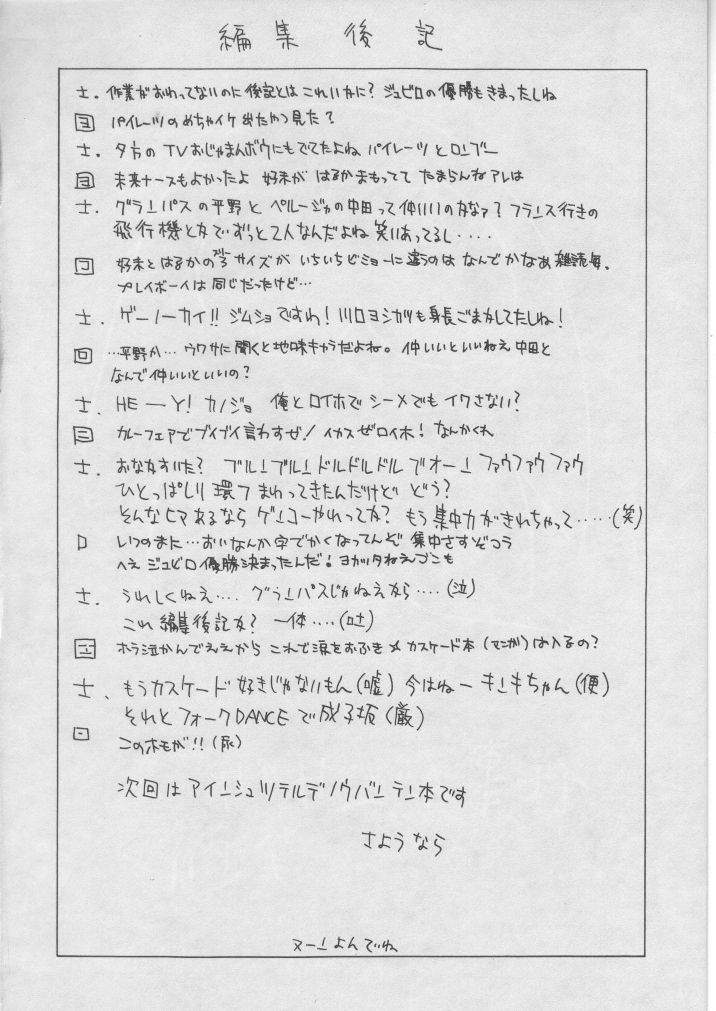 編集後記
士．作業がおわってないのに後記とはこれいかに？ジュビロの優勝もきまったしね
ヨ パイレーツのめちゃイケ出たやつ見た？
士．夕方のTVおじゃまんボウにもでてたよね パイレーツと
ヨ 未来ナースもよかったよ 好未が はるかまもってて たまらんねアレは
士．グランパスの平野とペルージャの中田って仲いいのかなァ？フランス行きの
飛行機とかでずっと2人なんだよね 笑いあってるし・・・・
コ 好未とはるかのサイズが いちいちビミョーに違うのは なんでかなあ 雑誌毎．
プレイボーイは同じだったけど…
士．ゲーノーカイ!! ジムショですわ！川口ヨシカツも身長ごまかしてたしね！
回 …平野か… ウワサに聞くと地味キャラだよね。仲いいといいねえ 中田と
なんで仲いいといいの？
士．HE－Y！カノジョ 俺とロイホで シーメでも イワさない？
三 カレーフェアでブイブイ言わすぜ！イカスぜロイホ！なんかくれ
士．おなかすいた？ ブルンブルンドルドルドルでオーン ファウファウファウ
ひとっぱしり 環7 まわってきたんだけど どう？
そんなヒマあるなら ゲンコーやれってか？ もう集中力がきれちゃって・・・・・（笑）
ロ いつのまに…おいなんか字でかくなってんぞ 集中さすぞコラ
へえ ジュビロ優勝決まったんだ！ヨカッタねえ ゴンも
士．うれしくねえ・・・．グランパスじゃねえなら・・・・（泣）
これ編集後記か？ 一体・・・・（吐）
ホラ泣かんでええから これで涙をおふき カスケード本（マンガ）は入るの？
士、もうカスケード好きじゃないもん（嘘）今はねーキンキちゃん（便）
それとフォークDANCEで成子坂（厳）
このホモが!!（尿）
次回はアインシュツテルデノウバンテン本です
さようなら
ヌーンよんでね